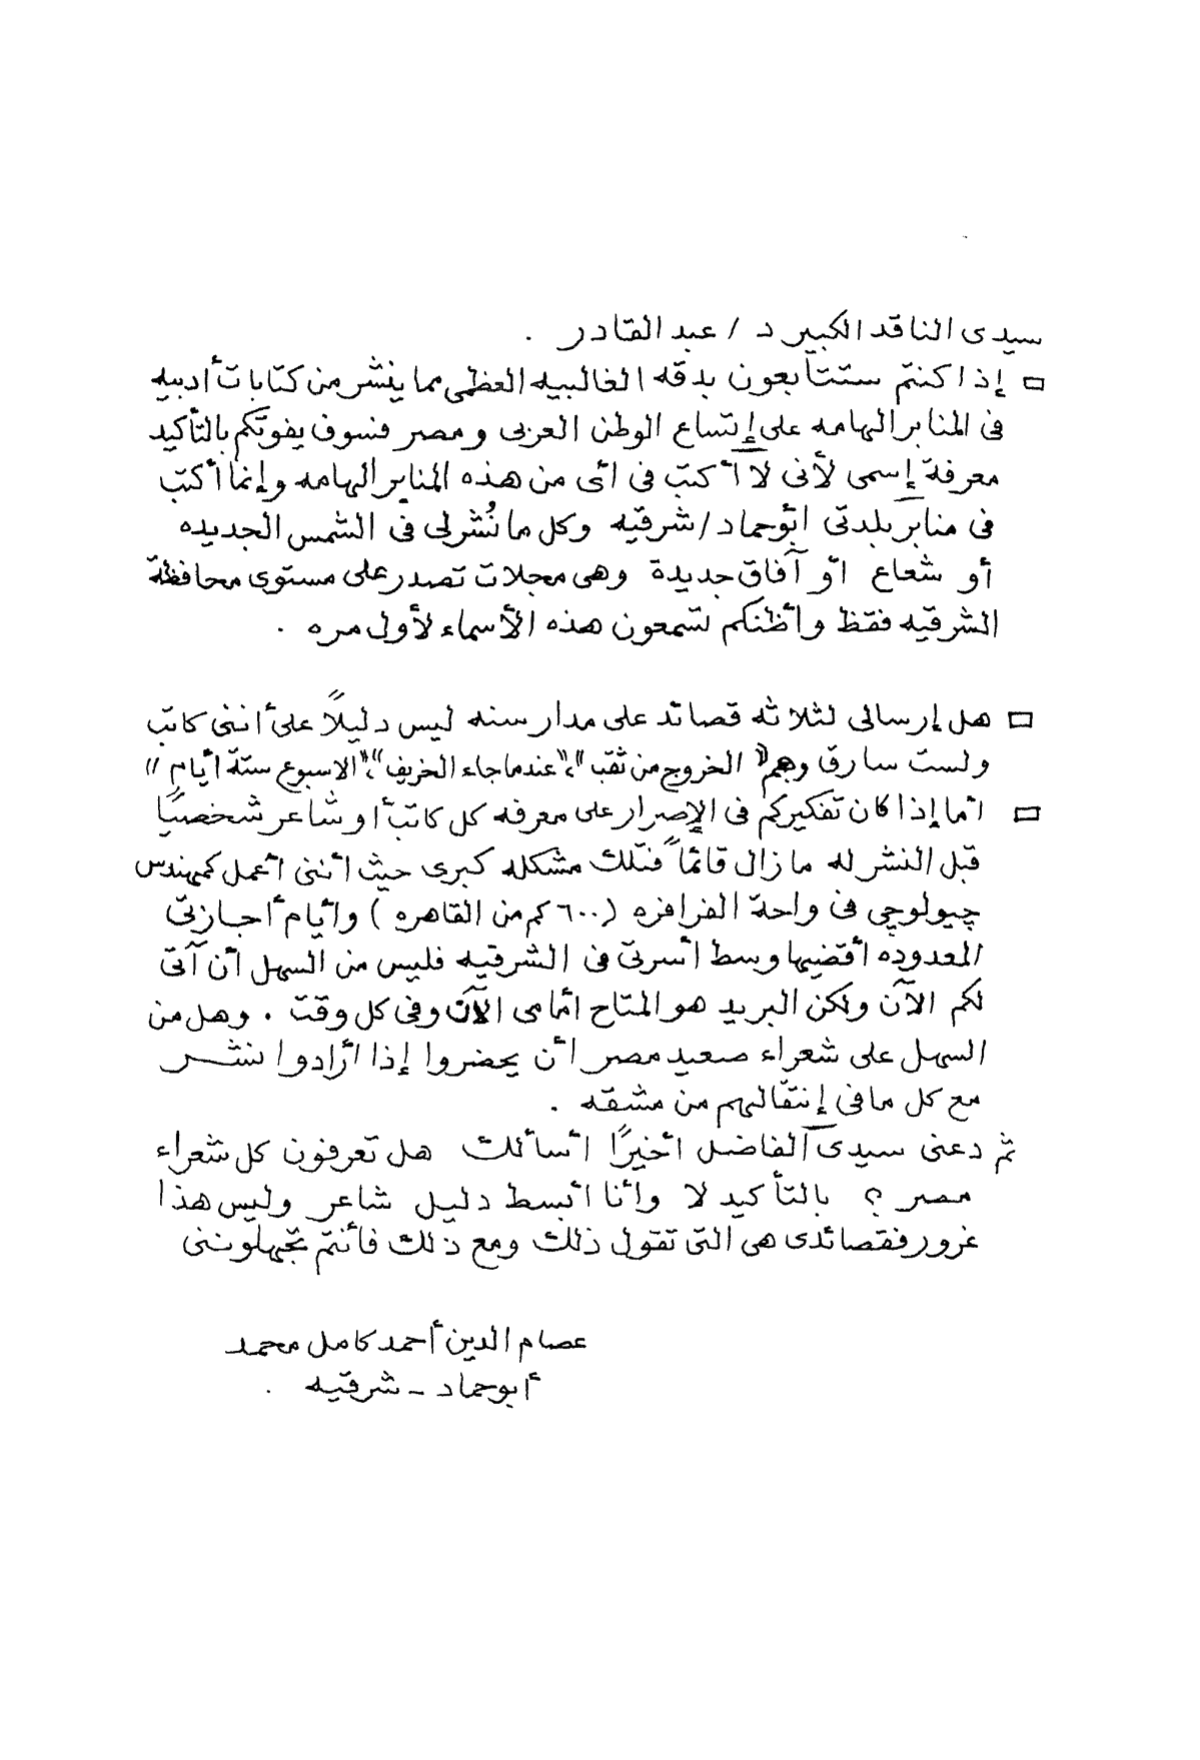 سيدى الناقد الكبير د / عبد القادر .
□ إذا كنتم ستتابعون بدقه الغالبيه العظمى مما ينشر من كتابات أدبيه
فى المنابر الهامه على إتساع الوطن العربى و مصر فسوف يفوتكم بالتأكيد
معرفة إسمى لأنى لا أكتب فى أى من هذه المنابر الهامه وإنما أكتب
فى منابر بلدتى أبوحماد/شرقيه وكل ما نُشر لى فى الشمس الجديده
أو شعاع أو آفاق جديدة وهى مجلات تصدر على مستوى محافظة
الشرقيه فقظ وأظنكم تسمعون هذه الأسماء لأول مره .
□ هل إرسالى لثلاثه قصائد على مدار سنه ليس دليلاً على أننى كاتب
ولست سارق وهم "الخروج من ثقب"، "عندما جاء الخريف"، "الاسبوع ستة أيام"
□ أما إذا كان تفكيركم فى الإصرار على معرفه كل كاتب أو شاعر شخصيًا
قبل النشر له ما زال قائمًا فتلك مشكله كبرى حيث أننى أعمل كمهندس
چيولوچى فى واحة الفرافره (٦٠٠ كم من القاهره ) وأيام أجازتى
المعدوده أقضيها وسط أسرتى فى الشرقيه فليس من السهل أن آتى
لكم الآن ولكن البريد هو المتاح أمامى الآن وفى كل وقت . وهل من
السهل على شعراء صعيد مصر أن يحضروا إذا أرادوا نشر
مع كل ما فى إنتقالهم من مشقه .
ثم دعنى سيدى الفاضل أخيرًا أسألك هل تعرفون كل شعراء
مصر ؟ بالتأكيد لا وأنا أبسط دليل شاعر وليس هذا
غرور فقصائدى هى التى تقول ذلك ومع ذلك فأنتم تجهلوننى
عصام الدين أحمد كامل محمد
أبوحماد - شرقيه .